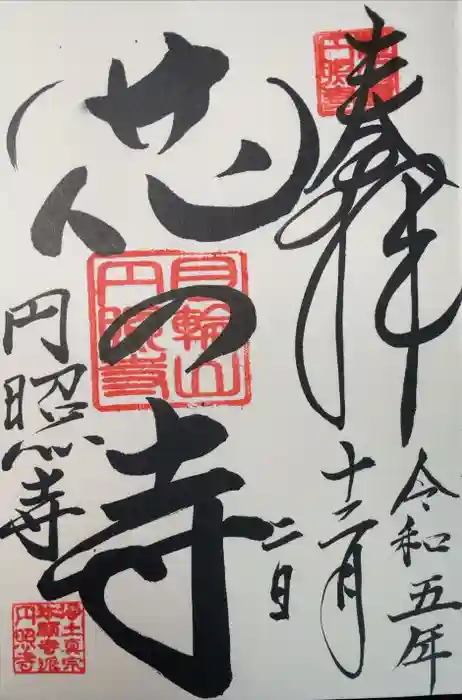 奉拝
令和五年
十二月
二日
花の寺
円照寺
月輪山
円照寺
浄土真宗
本願寺派
円照寺